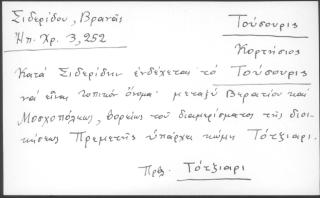 Σιδερίδου, Βρανᾶς
Ἠπ. Χρ. 3, 252
Τούσουρις
Κορτήσιος
Κατά Σιδερίδην ἐνδέχεται τό Τούσουρις
νά εἶναι τοπικόν ὄνομα· μεταξύ Βερατίου καί
Μοσχοπόλεως, βορείως τοῦ διαμερίσματος τῆς διοι-
κήσεως Πρεμετῆς ὑπάρχει κώμη Τότζιαρι.
Πρβ. Τότζιαρι